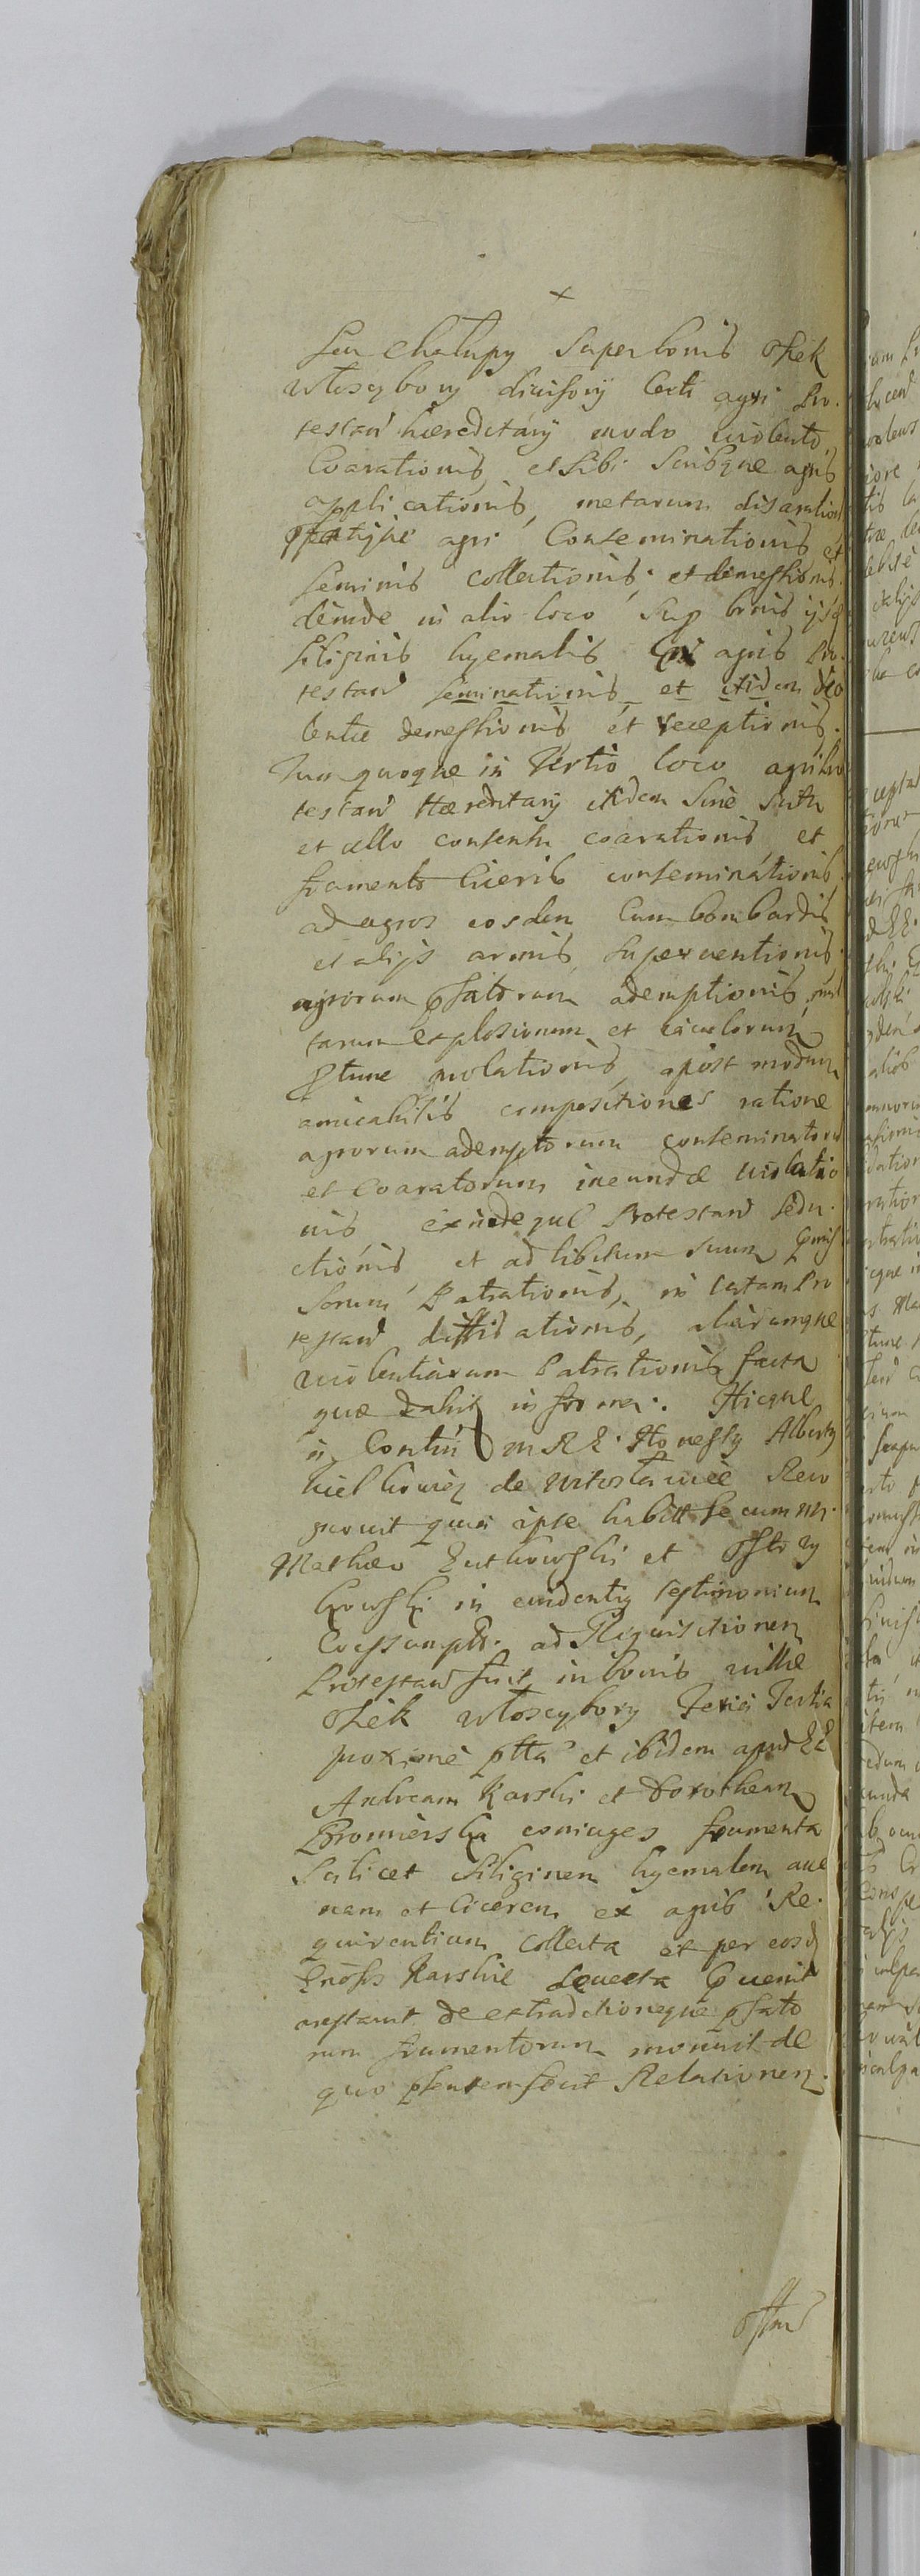 seu Chałupy super bonis Osiek
Włoscybory diuisorij Certi agri Pro-
testan hæreditarij modo uiolento
Coarationis, et Sibi Suisque agris
applicationis, metarum disaration
agri Conseminationis et
Seminis collectionis et demessionis
deinde in alio loco Sup bonis ijsd
Siliginis hyemalis agris Pro-
testan seminationis et itidem Vio
lentæ demessionis et receptionis.
Tum quoque in Tertio loco agri Pro
testan Hæreditarij itidem Sine Scitu
et ullo consensu coarationis et
frumento Ciceris conseminationis
ad agros eosdem Cum bombardis
et alijs armis superuentionis
agrorum psatorum ademptionis
tarum explosionum et iaculorum
uiolationis, apost modum
amicabilis compositiones ratione
agrorum ademptorum conseminatorum
et Coaratorum ineundæ uiolatio
nis exindeque Protestan Sedu-
ctionis et ad libitum suum
Sorum Patrationis, in certam Pro
testan aliarumque
uiolentiarum Patrationis facta
quæ dabit in forma. Hicque
in Contin M R E Honesty Alberty
de Witosławice Reco
gnouit quia ipse habitt secum NN
Mathæo Lutkowski et
kowski in euidentiq testimonium
ad Requisitionem
Protestan fuit in bonis uillæ
Osiek Włoscybory Feria Tertia
proximè ptta et ibidem apud EE
Andream Karski et Dorotheam
Bronierska coniuges frumenta
Scilicet Siliginem hyemalem aue
nam et Cicerem ex agris Re-
quirentium Collecta et per eosd
Gnosos Karskie
arestauit de extraditioneque psato
rum frumentorum monuit de
quo psentem fecit Relationem.